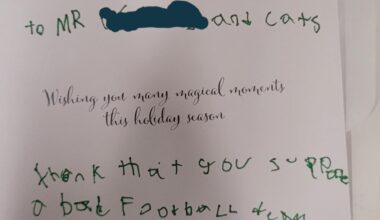 to MR and cats
Wishing you many magical moments
this holiday season
thank that you suPPOre
a bast FootbaLL